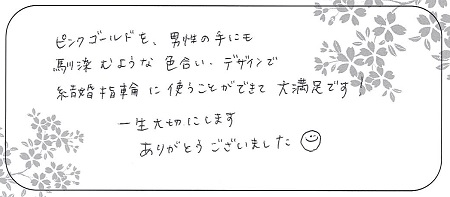 ピンクゴールドを、男性の手にも
馴染むような色合い、デザインで
結婚指輪に使うことができて大満足です!
一生大切にします
ありがとうございました